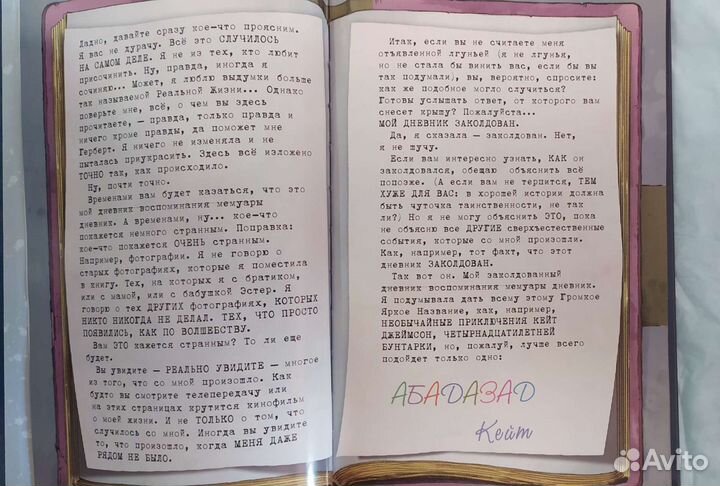 Ладно, давайте сразу кое-что проясним.
Я вас не дурачу. Всё это СЛУЧИЛОСЬ
НА САМОМ ДЕЛЕ. Я не из тех, кто любит
присочинить. Ну, правда, иногда я
сочиняю... Может, я люблю выдумки больше
так называемой Реальной Жизни... Однако
поверьте мне, всё, о чем вы здесь
прочитаете, — правда, только правда и
ничего кроме правды, да поможет мне
Герберт. Я ничего не изменяла и не
пыталась приукрасить. Здесь всё изложено
ТОЧНО так, как происходило.
Ну, почти точно.
Временами вам будет казаться, что это
мой дневник воспоминания мемуары
дневник. А временами, ну... кое-что
покажется немного странным. Поправка:
кое-что покажется ОЧЕНЬ странным.
Например, фотографии. Я не говорю о
старых фотографиях, которые я поместила
в книгу. Тех, на которых я с братиком,
или с мамой, или с бабушкой Эстер. Я
говорю о тех ДРУГИХ фотографиях, КОТОРЫХ
НИКТО НИКОГДА НЕ ДЕЛАЛ. ТЕХ, ЧТО ПРОСТО
ПОЯВИЛИСЬ, КАК ПО ВОЛШЕБСТВУ.
Вам ЭТО кажется странным? То ли еще
будет.
Вы увидите — РЕАЛЬНО УВИДИТЕ — многое
из того, что со мной произошло. Как
будто вы смотрите телепередачу или
на этих страницах крутится кинофильм
о моей жизни. И не ТОЛЬКО о том, что
случилось со мной. Иногда вы увидите
то, что произошло, когда МЕНЯ ДАЖЕ
РЯДОМ НЕ БЫЛО.
Итак, если вы не считаете меня
отъявленной лгуньей (я не лгунья,
но не стала бы винить вас, если бы вы
так подумали), вы, вероятно, спросите:
как же подобное могло случиться?
Готовы услышать ответ, от которого вам
снесет крышу? Пожалуйста...
МОЙ ДНЕВНИК ЗАКОЛДОВАН.
Да, я сказала — заколдован. Нет,
я не шучу.
Если вам интересно узнать, КАК он
заколдовался, обещаю объяснить всё
попозже. (А если вам не терпится, ТЕМ
ХУЖЕ ДЛЯ ВАС: в хорошей истории должна
быть чуточка таинственности, не так
ли?) Но я не могу объяснить ЭТО, пока
не объясню все ДРУГИЕ сверхъестественные
события, которые со мной произошли.
Как, например, тот факт, что этот
дневник ЗАКОЛДОВАН.
Так вот он. Мой заколдованный
дневник воспоминания мемуары дневник.
Я подумывала дать всему этому Громкое
Яркое Название, как, например,
НЕОБЫЧАЙНЫЕ ПРИКЛЮЧЕНИЯ КЕЙТ
ДЖЕЙМСОН, ЧЕТЫРНАДЦАТИЛЕТНЕЙ
БУНТАРКИ, но, пожалуй, лучше всего
подойдет только одно:
АБАДАЗАД
Кейт
Avito